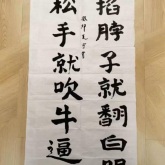 掐脖子就翻白眼
松手就吹牛逼